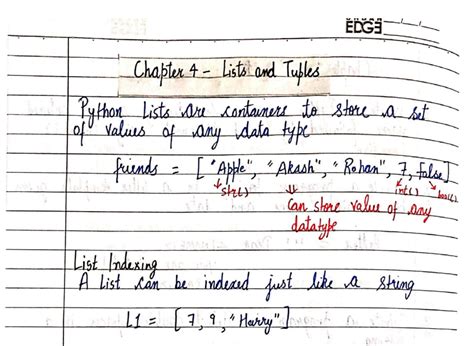 EDGE
Chapter 4 - Lists and Tuples
Python Lists are containers to store a set
of values of any data type
friends = [ "Apple", "Akash", "Rohan", 7, False]
str() int() bool()
Can store value of any
datatype
List Indexing
A List can be indexed just like a string
L1 = [ 7, 9, "Harry" ]